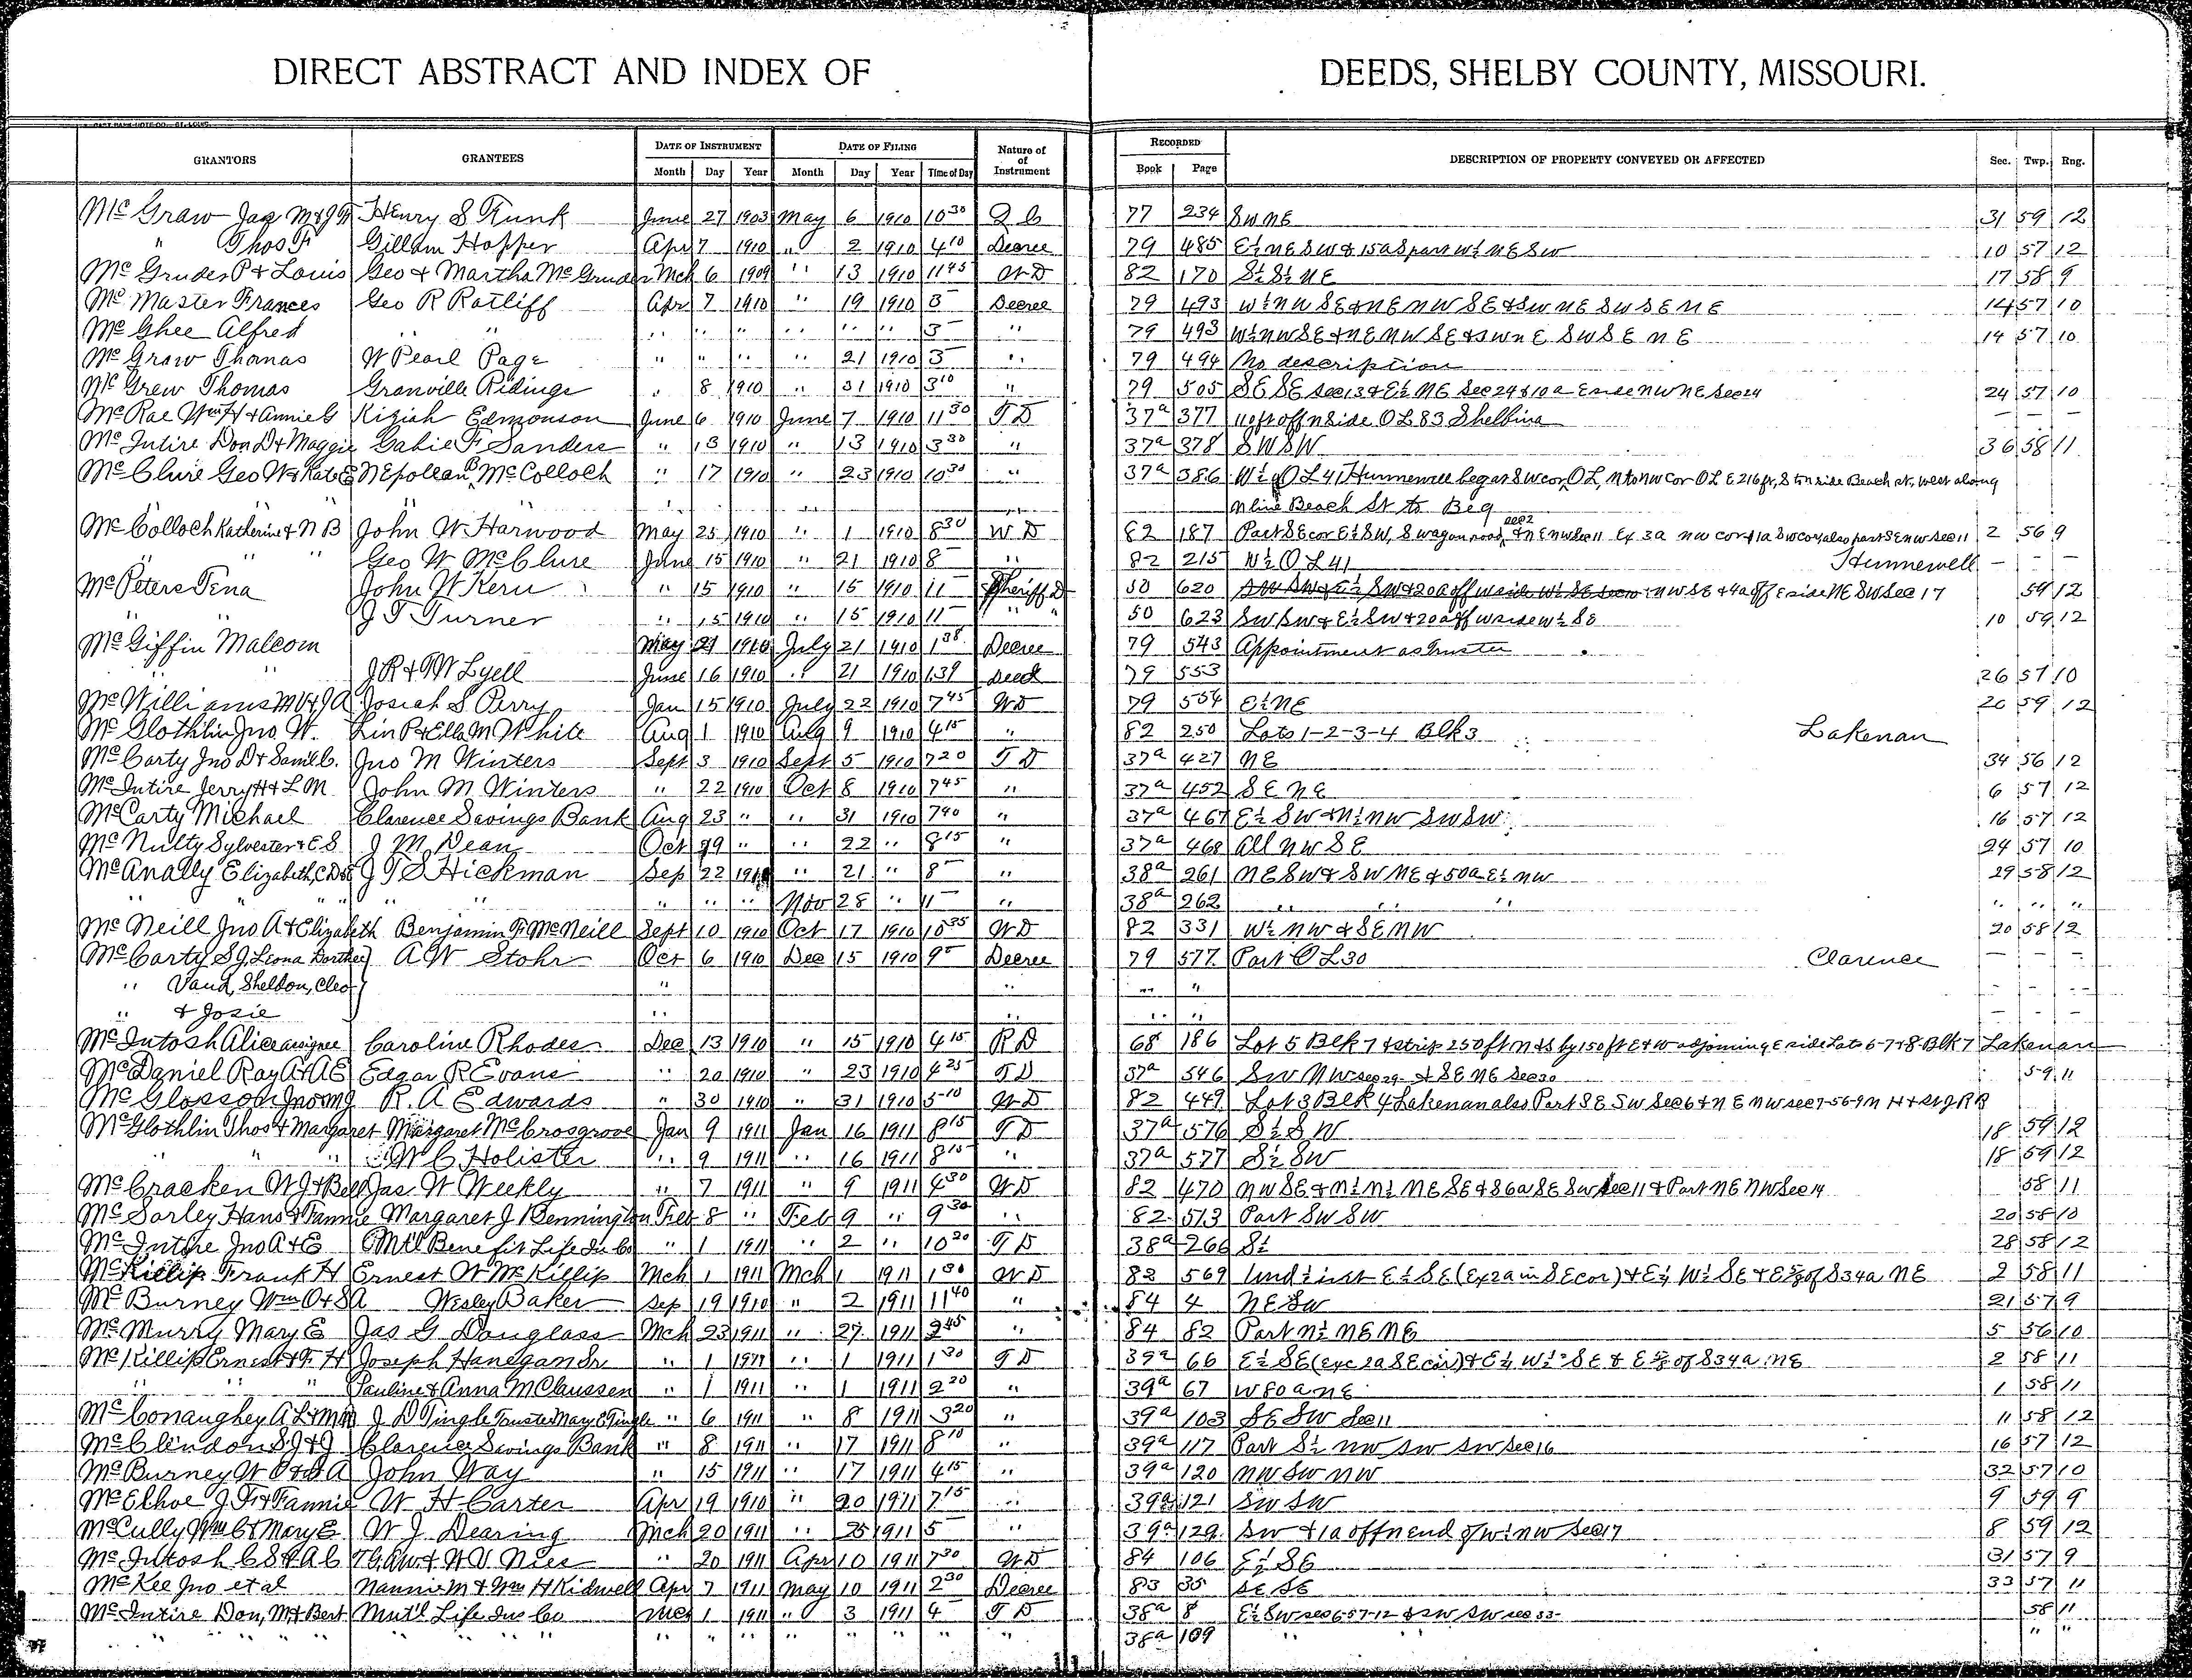 DIRECT ABSTRACT AND INDEX OF DEEDS, SHELBY COUNTY, MISSOURI.
GRANTORS GRANTEES DATE OF INSTRUMENT DATE OF FILING Nature of Instrument RECORDED DESCRIPTION OF PROPERTY CONVEYED OR AFFECTED Sec. Twp. Rng.
Month Day Year Month Day Year Time of Day Book Page
McGraw Jas M & J F Henry S Funk June 27 1903 May 6 1910 10 30 Q C 77 234 SW NE 31 59 12
" Thos F Gillam Hopper Apr 7 1910 " 2 1910 4 10 Decree 79 485 E½ NE SW & 15a S part W½ NE SW 10 57 12
McGruder P & Louis Geo & Martha McGruder Mch 6 1909 " 13 1910 11 45 WD 82 170 S½ S½ NE 17 58 9
McMaster Frances Geo R Ratliff Apr 7 1910 " 19 1910 3 – Decree 79 493 W½ NW SE & NE NW SE & SW NE SW SE NE 14 57 10
McGhee Alfred " " " " " " " " 3 – " 79 493 W½ NW SE & NE NW SE & SW NE SW SE NE 14 57 10
McGraw Thomas W Pearl Page " " " " 21 1910 3 – " 79 494 No description
McGrew Thomas Granville Ridings " 8 1910 " 31 1910 3 10 " 79 505 SE SE Sec 13 & E½ NE Sec 24 & 10a E side NW NE Sec 24 24 57 10
McRae Wm H & Annie G Kiziah Edmonson June 6 1910 June 7 1910 11 30 TD 37a 377 110 ft off N Side OL 83 Shelbina – – –
McIntire Don D & Maggie Gabie F Sanders " 13 1910 " 13 1910 3 30 " 37a 378 SW SW 36 58 11
McClure Geo W & Kate E NEpolean B McColloch " 17 1910 " 23 1910 10 30 " 37a 386 W½ of OL 41 Hunnewell beg at SW cor OL, N to NW Cor OL E 216 ft, S to N side Beach st, west along
" " " " " " N line Beach St to Beg
McColloch Katherine & N B John W Harwood May 25 1910 " 1 1910 8 30 WD 82 187 Part SE cor E½ SW, S wagon road, Sec 2 & NE NW Sec 11 Ex 3a NW cor & 1a SW cor also part SE NW Sec 11 2 56 9
" " " Geo W McClure June 15 1910 " 21 1910 8 – " 82 215 W½ OL 41 Hunnewell – –
McPeters Tena John W Kern " 15 1910 " 15 1910 11 – Sheriff D 50 620 SW SW & E½ SW & 20a off W side W½ SE Sec 10 NW SE & 4a off E side NE SW Sec 17 59 12
" " J T Turner " 15 1910 " 15 1910 11 – " " 50 623 SW SW & E½ SW & 20a off W side W½ SE 10 59 12
McGiffin Malcom May 21 1910 July 21 1910 1 38 Decree 79 543 Appointment as trustee
" J R & T W Lyell June 16 1910 " 21 1910 1 39 Deed 79 553 26 57 10
McWilliams M V & J A Josiah S Perry Jan 15 1910 July 22 1910 7 45 WD 79 554 E½ NE 20 59 12
McGlothlin Jno W. Lin P & Ella M White Aug 1 1910 Aug 9 1910 4 15 " 82 250 Lots 1-2-3-4 Blk 3 Lakenan
McCarty Jno D & Saml C. Jno M Winters Sept 3 1910 Sept 5 1910 7 20 TD 37a 427 NE 34 56 12
McIntire Jerry H & L M John M Winters " 22 1910 Oct 8 1910 7 45 " 37a 452 SE NE 6 57 12
McCarty Michael Clarence Savings Bank Aug 23 " " 31 1910 7 40 " 37a 467 E½ SW & N½ NW SW SW 16 57 12
McNulty Sylvester & E S J M Dean Oct 19 " " 22 " 8 15 " 37a 468 All NW SE 24 57 10
McAnally Elizabeth, J T S Hickman Sep 22 1910 " 21 " 8 – " 38a 261 NE SW & SW NE & 50a E½ NW 29 58 12
" " " " " " " " Nov 28 " 11 – " 38a 262 " " " " " "
McNeill Jno A & Elizabeth Benjamin F McNeill Sept 10 1910 Oct 17 1910 10 35 WD 82 331 W½ NW & SE NW 20 58 12
McCarty S J, Leona Dorthey A W Stohr Oct 6 1910 Dec 15 1910 9 – Decree 79 577 Part OL 30 Clarence – – –
" Vaud, Sheldon, Cleo " " " " – – –
" & Josie " " " " – – –
McIntosh Alice assignee Caroline Rhodes Dec 13 1910 " 15 1910 4 15 RD 68 186 Lot 5 Blk 7 & strip 250 ft N & S by 150 ft E & W adjoining E side Lots 6-7 & 8 Blk 7 Lakenan
McDaniel Ray A & A E Edgar R Evans " 20 1910 " 23 1910 4 25 TD 37a 546 SW NW Sec 29 & SE NE Sec 30 59 11
McGlosson Jno R. A Edwards " 30 1910 " 31 1910 5 10 WD 82 449 Lot 3 Blk 4 Lakenan also Part SE SW Sec 6 & NE NW Sec 7-56-9 N H & St J R R
McGlothlin Thos & Margaret Margaret McCrosgrove Jan 9 1911 Jan 16 1911 8 15 TD 37a 576 S½ SW 18 59 12
" " " W C Holister " 9 1911 " 16 1911 8 15 " 37a 577 S½ SW 18 59 12
McCracken W J & Bell Jas W Weekly " 7 1911 " 9 1911 4 30 WD 82 470 NW SE & N½ N½ NE SE & S6a SE SW Sec 11 & Part NE NW Sec 14 58 11
McSorley Hans & Fannie Margaret J Bennington Feb 8 " Feb 9 " 9 30 " 82 513 Part SW SW 20 58 10
McIntire Jno A & E Mtl Benefit Life Ins Co " 1 1911 " 2 " 10 20 TD 38a 266 S½ 28 58 12
McKillip Frank H Ernest W McKillip Mch 1 1911 Mch 1 1911 1 30 WD 82 569 Und ½ int E½ SE (Ex 2a in SE cor) & E½ W½ SE & E of S34a NE 2 58 11
McBurney Wm O & S A Wesley Baker Sep 19 1910 " 2 1911 11 40 " 84 4 NE SW 21 57 9
McMurry Mary E Jas G Douglass Mch 23 1911 " 27 1911 2 45 " 84 82 Part N½ NE NE 5 56 10
McKillip Ernest & F H Joseph Hanegan Sr " 1 1911 " 1 1911 1 30 TD 39a 66 E½ SE (exc 2a SE cor) & E½ W½ SE & E of S34a NE 2 58 11
" " " Pauline & Anna M Claussen " 1 1911 " 1 1911 2 20 " 39a 67 W 80a NE 1 58 11
McConaughey A L & M M J D Pingle Trustee Mary E Pingle " 6 1911 " 8 1911 3 20 " 39a 103 SE SW Sec 11 11 58 12
McClendon S J & J Clarence Savings Bank " 8 1911 " 17 1911 8 10 " 39a 117 Part S½ NW SW SW Sec 16 16 57 12
McBurney W O & S A John Way " 15 1911 " 17 1911 4 15 " 39a 120 NW SW NW 32 57 10
McElhoe J F & Fannie W H Carter Apr 19 1910 " 20 1911 7 15 " 39a 121 SW SW 9 59 9
McCully Wm C & Mary E W J Dearing Mch 20 1911 " 25 1911 5 – " 39a 129 SW & 1a off N end of W½ NW Sec 17 8 59 12
McIntosh C S & A C & W V Nies " 20 1911 Apr 10 1911 7 30 WD 84 106 E½ SE 31 57 9
McKee Jno et al Nannie M & Wm H Kidwell Apr 7 1911 May 10 1911 2 30 Decree 83 35 SE SE 33 57 11
McIntire Don, M & Bert Mut'l Life Ins Co Mch 1 1911 " 3 1911 4 – TD 38a 8 E½ SW Sec 6-57-12 & SW SW Sec 33- 58 11
" " " " " " " " " " " " " " " " 38a 109 " " " "